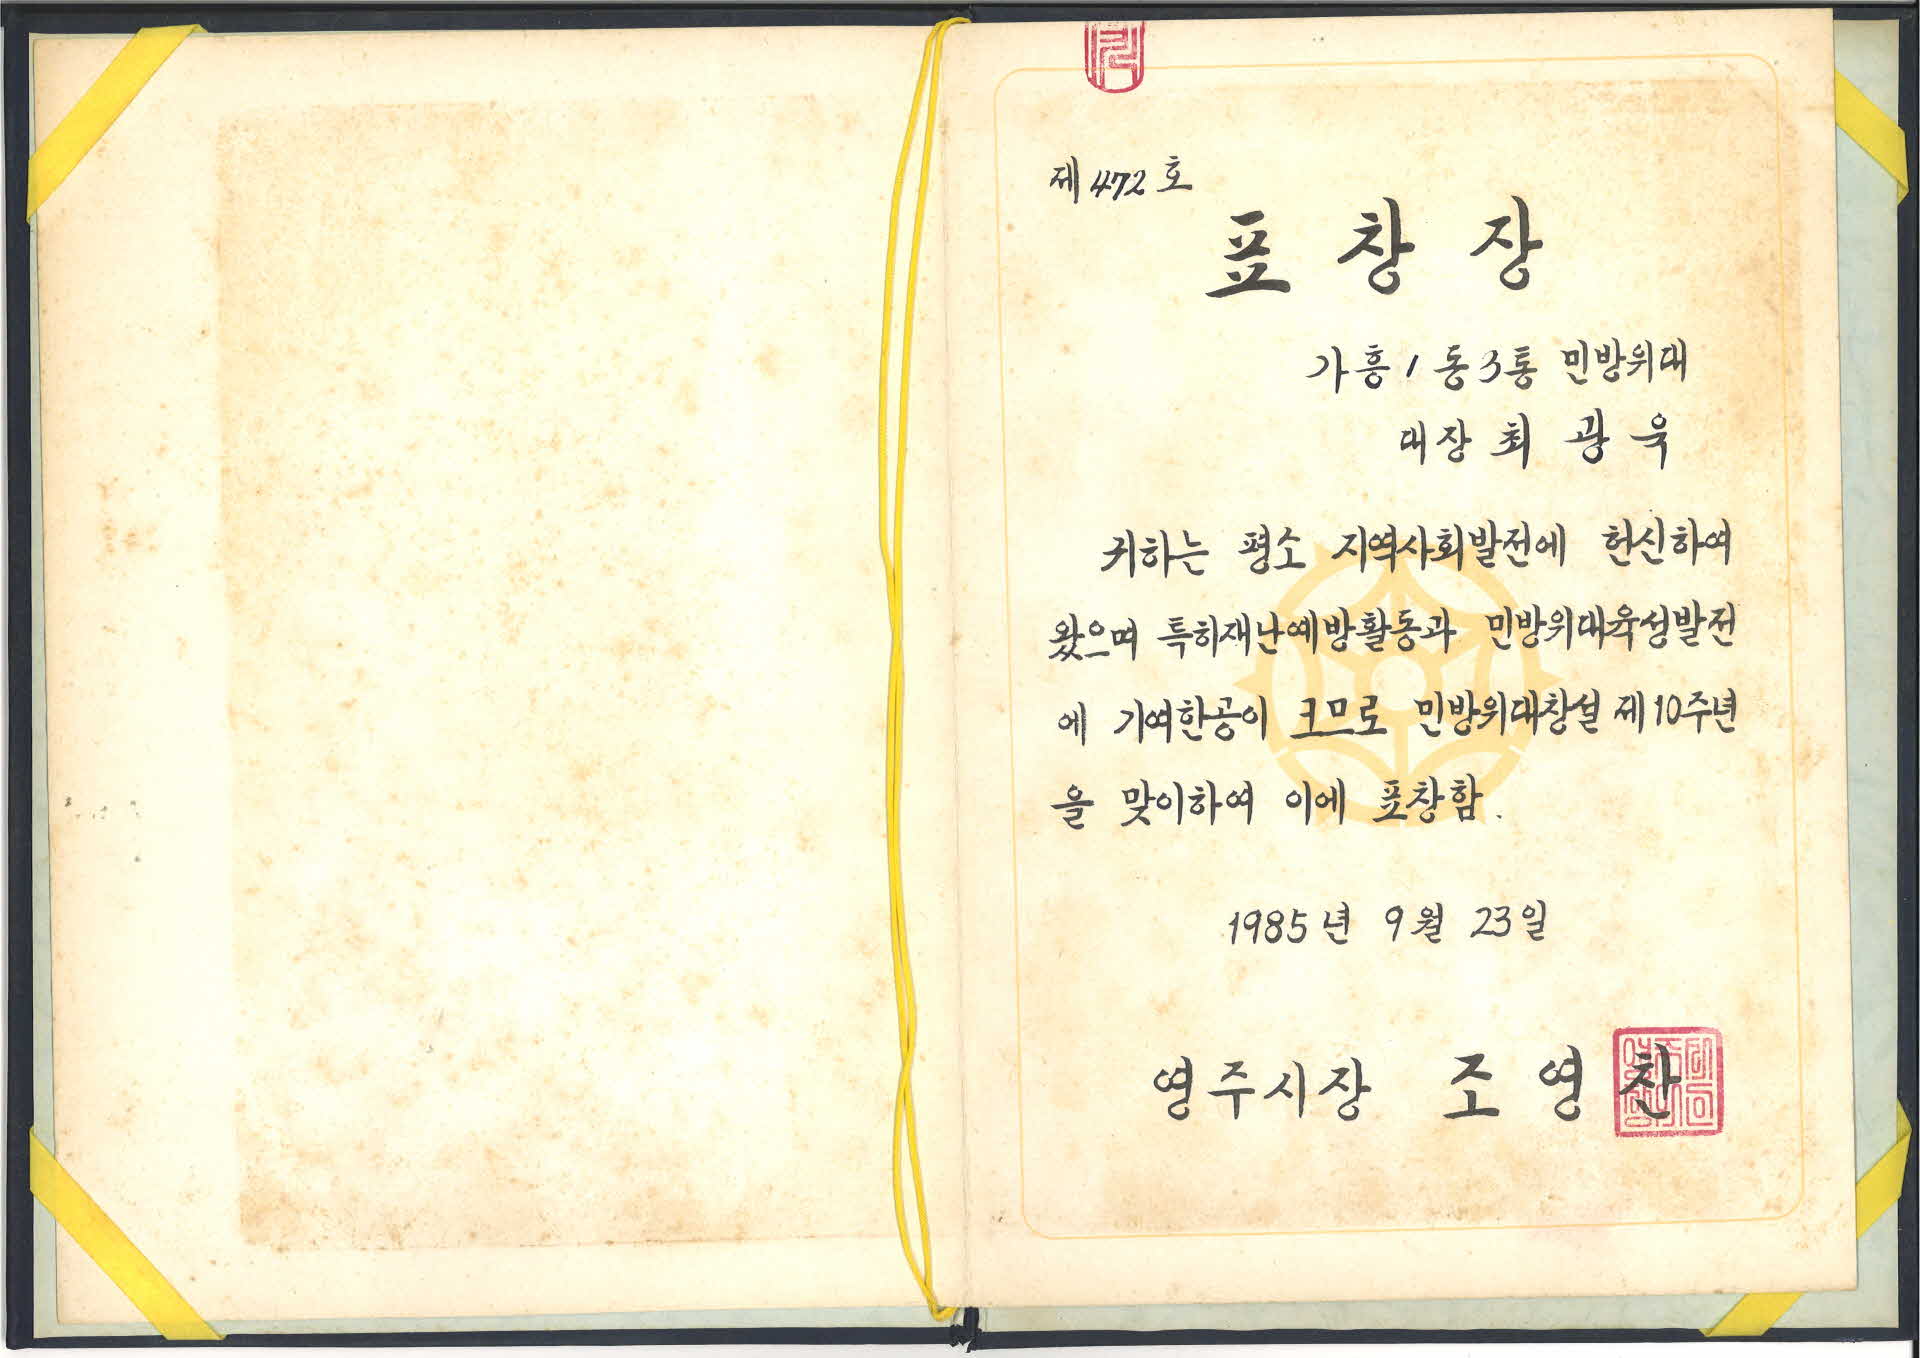 제 472 호
표 창 장
가흥 1 동 3 통 민방위대
대장 최 광 욱
귀하는 평소 지역사회발전에 헌신하여
왔으며 특히재난예방활동과 민방위대육성발전
에 기여한공이 크므로 민방위대창설 제10주년
을 맞이하여 이에 표창함.
1985년 9월 23일
영주시장 조 영 찬